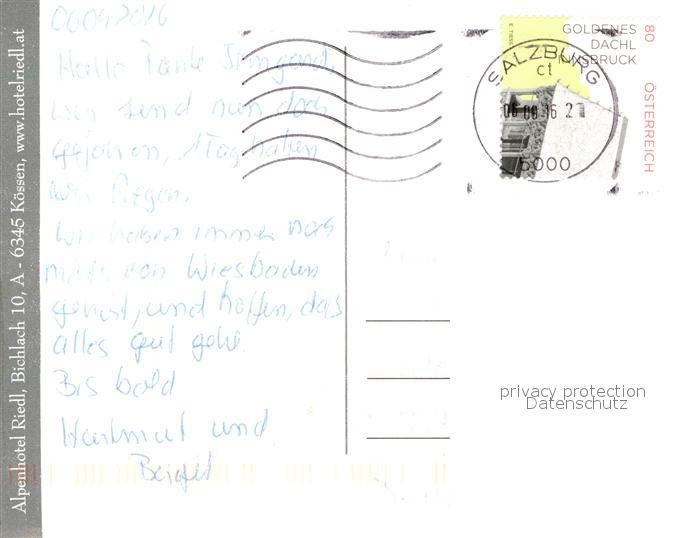 06092016
Hallo Tante Irmgard,
wir sind nun doch
gefahren, 1 Tag hatten
wir Regen.
Wir haben immer noch
nichts von Wiesbaden
gehört, und hoffen, das
alles gut geht.
Bis bald
Hartmut und
Birgit
Alpenhotel Riedl, Bichlach 10, A - 6345 Kössen, www.hotelriedl.at
GOLDENES
DACHL
INNSBRUCK
80
ÖSTERREICH
SALZBURG
ct
06 09 16 21
5000
privacy protection
Datenschutz